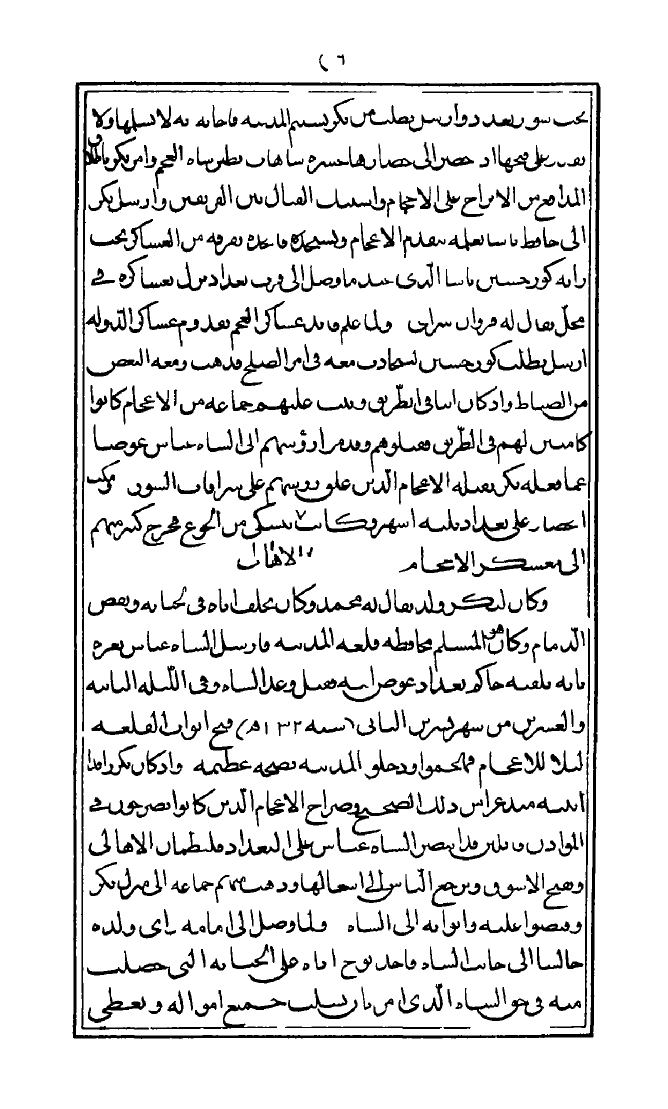 (٦
تحت سور بغداد وارسل يطلب من بكر تسليم المدينة فاجابه بانه لا يسلمها ولا
يقدر على فتحها اذ حضر الى حصارها خمسة شاهات نظير شاه العجم وامر بكر باطلاق
المدافع من الابراج على الاعجام واشتبك القتال بين الفريقين وارسل بكر
الى حافظ باشا يعلمه بتقدم الاعجام ويستنجده فانجده بفرقة من العساكر تحت
راية كور حسين باشا الّذي عند ما وصل الى قرب بغداد نزل بعساكره في
محلّ يقال له سراي ولما علم قايد عساكر العجم بقدوم عساكر الدّولة
ارسل يطلب كور حسين ليتحادث معه في امر الصلح فذهب ومعه البعض
من الضباط واذ كان في الطّريق وثب عليهم جماعة من الاعجام كانوا
كامنين لهم في الطّريق فقتلوهم وقدموا رؤسهم الى الشاه عباس عوضا
عما فعله بكر بقتله الاعجام الّذين علق روسهم على شرافات السور
الحصار على بغداد ثلثة اشهر وكانت تشتكي من الجوع فخرج كثير منهم
الى معسكر الاعجام الاهالي
وكان لبكر ولد يقال له محمد وكان يخالف اباه في الخيانة ونقض
الذمام وكان هو المستلم محافظة قلعة المدينة فارسل الشاه عباس يغره
بانه يقيمه حاكم بغداد عوض ابيه فقبل وعد الشاه وفي اللّيلة الثامنة
والعشرين من شهر تشرين الثاني (سنة ١٠٣٢هـ) فتح ابواب القلعة
ليلا للاعجام فهجموا ودخلوا المدينة بضجة عظيمة واذ كان بكر راقدا
انتبه من ذلك الضجيج وصراخ الاعجام الذين كانوا يصرخون في
الموادن قايلين قد انتصر الشاه عباس على البغداد فليطمان الاهالي
وتفتح الاسواق ويرجع النّاس الى اشغالها وذهب منهم جماعة الى منزل بكر
وقبضوا عليه واتوا به الى الشاه ولما وصل الى امامه راى ولده
جالسا الى جانب الشاه فاخذ يوبخ اباه على الخيانة التي حصلت
منه في حق الشاه الّذي امر بان يسلب جميع امواله ويعطي